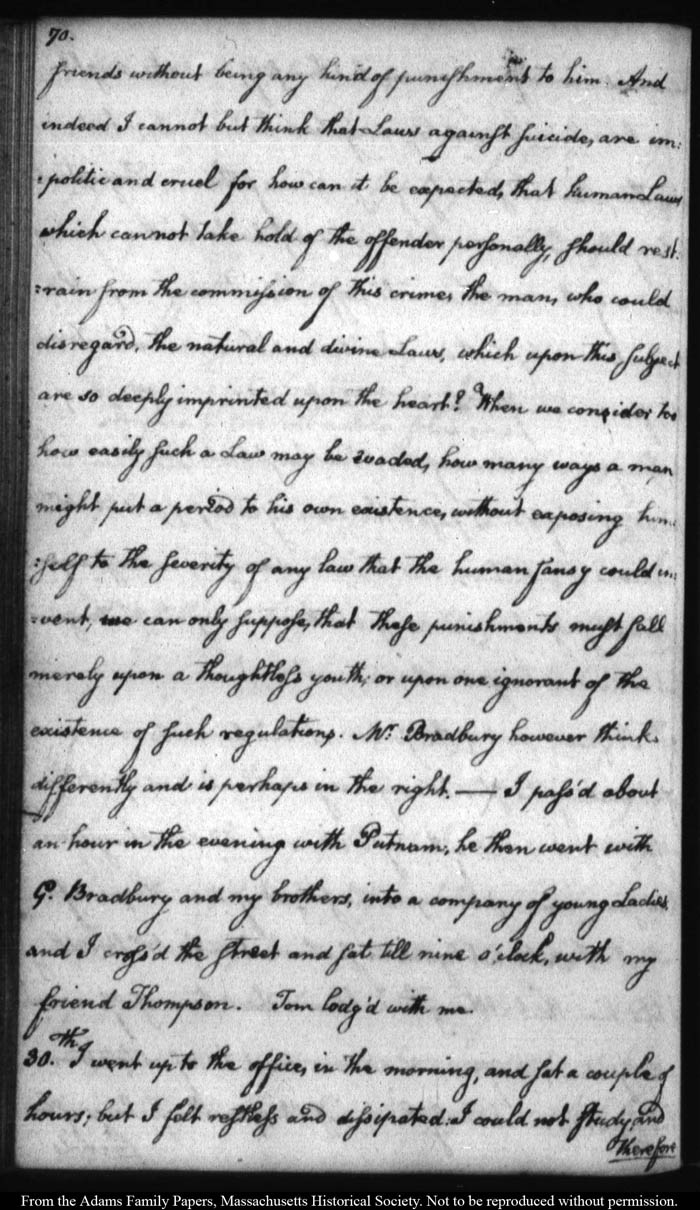 70.
friends without being any kind of punishment to him. And
indeed I cannot but think that Laws against suicide, are im:
:politic and cruel for how can it be expected, that human Laws
which cannot take hold of the offender personally, should rest:
:rain from the commission of this crime, the man, who could
disregard, the natural and divine Laws, which upon this subject
are so deeply imprinted upon the heart? When we consider too
how easily such a Law may be evaded, how many ways a man
might put a period to his own existence, without exposing him:
:self to the severity of any law that the human fansy could in:
:vent, we can only suppose, that these punishments must fall
merely upon a thoughtless youth; or upon one ignorant of the
existence of such regulations. Mr. Bradbury however thinks
differently and is perhaps in the right. — I pass'd about
an hour in the evening with Putnam, he then went with
G. Bradbury and my brothers, into a company of young Ladies,
and I cross'd the street and sat till nine o'clock, with my
friend Thompson. Tom lodg'd with me.
30.th I went up to the office, in the morning, and sat a couple of
hours; but I felt restless and dissipated: I could not study, and
therefore
From the Adams Family Papers, Massachusetts Historical Society. Not to be reproduced without permission.